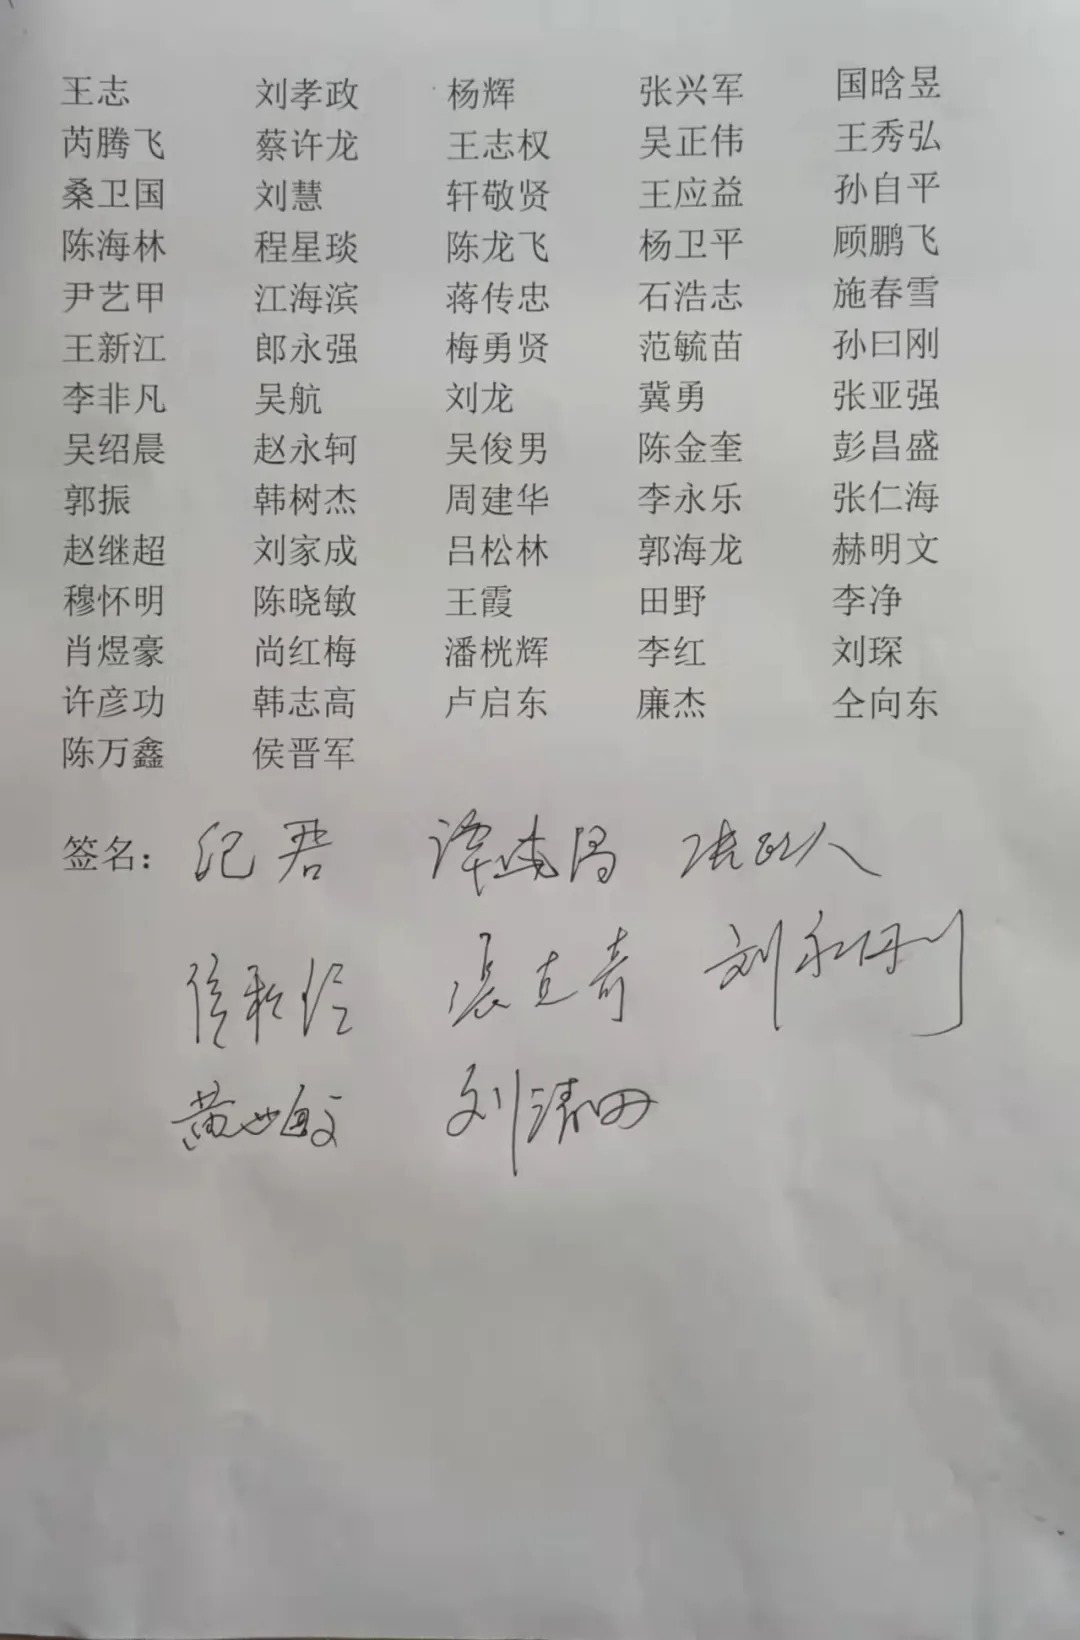 王志 刘孝政 杨辉 张兴军 国晗昱
芮腾飞 蔡许龙 王志权 吴正伟 王秀弘
桑卫国 刘慧 轩敬贤 王应益 孙自平
陈海林 程星琰 陈龙飞 杨卫平 顾鹏飞
尹艺甲 江海滨 蒋传忠 石浩志 施春雪
王新江 郎永强 梅勇贤 范毓苗 孙曰刚
李非凡 吴航 刘龙 冀勇 张亚强
吴绍晨 赵永轲 吴俊男 陈金奎 彭昌盛
郭振 韩树杰 周建华 李永乐 张仁海
赵继超 刘家成 吕松林 郭海龙 赫明文
穆怀明 陈晓敏 王霞 田野 李净
肖煜豪 尚红梅 潘桄辉 李红 刘琛
许彦功 韩志高 卢启东 廉杰 仝向东
陈万鑫 侯晋军
签名： 纪君
張克奇 刘永刚
黄 刘清